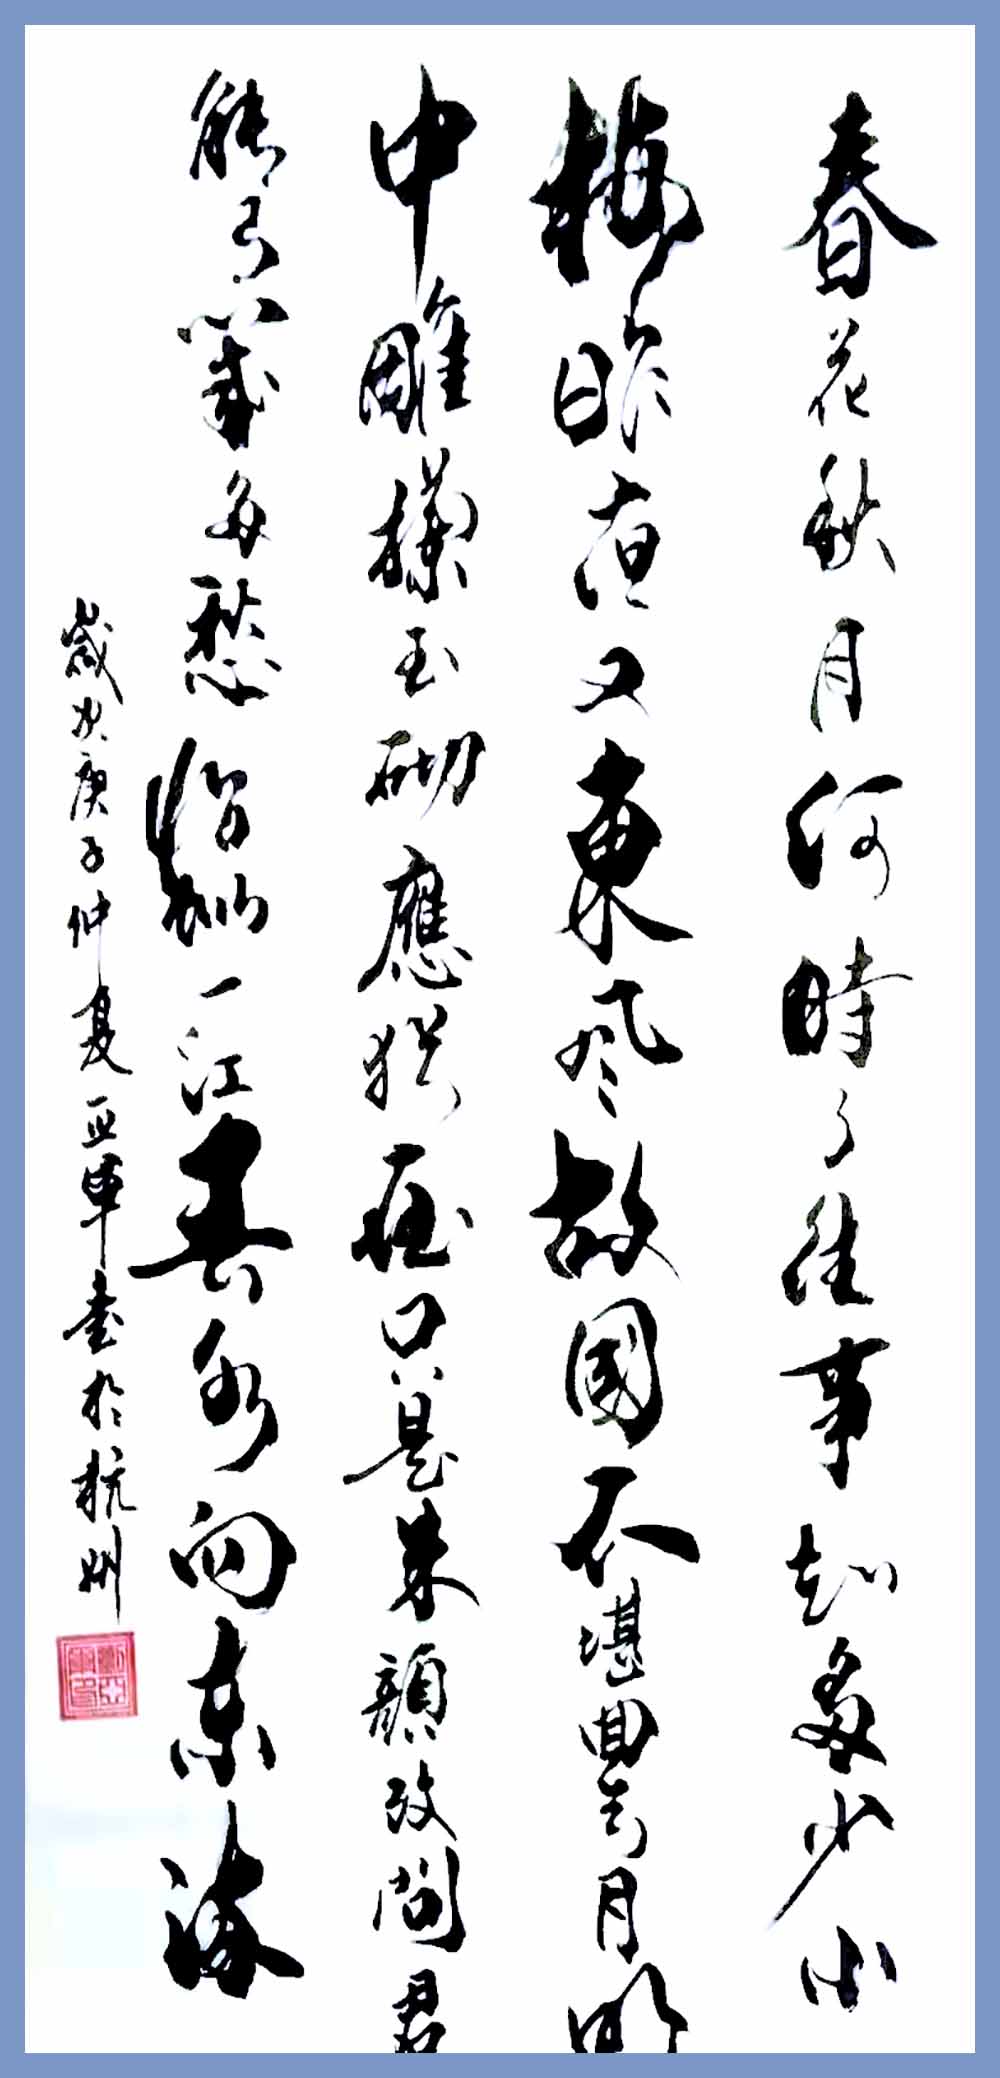 春花秋月何時了往事知多少小
樓昨夜又東風故國不堪回首月明
中雕欄玉砌應猶在只是朱顏改問君
能有幾多愁恰似一江春水向東流
歲次庚子仲夏亞軍書於杭州